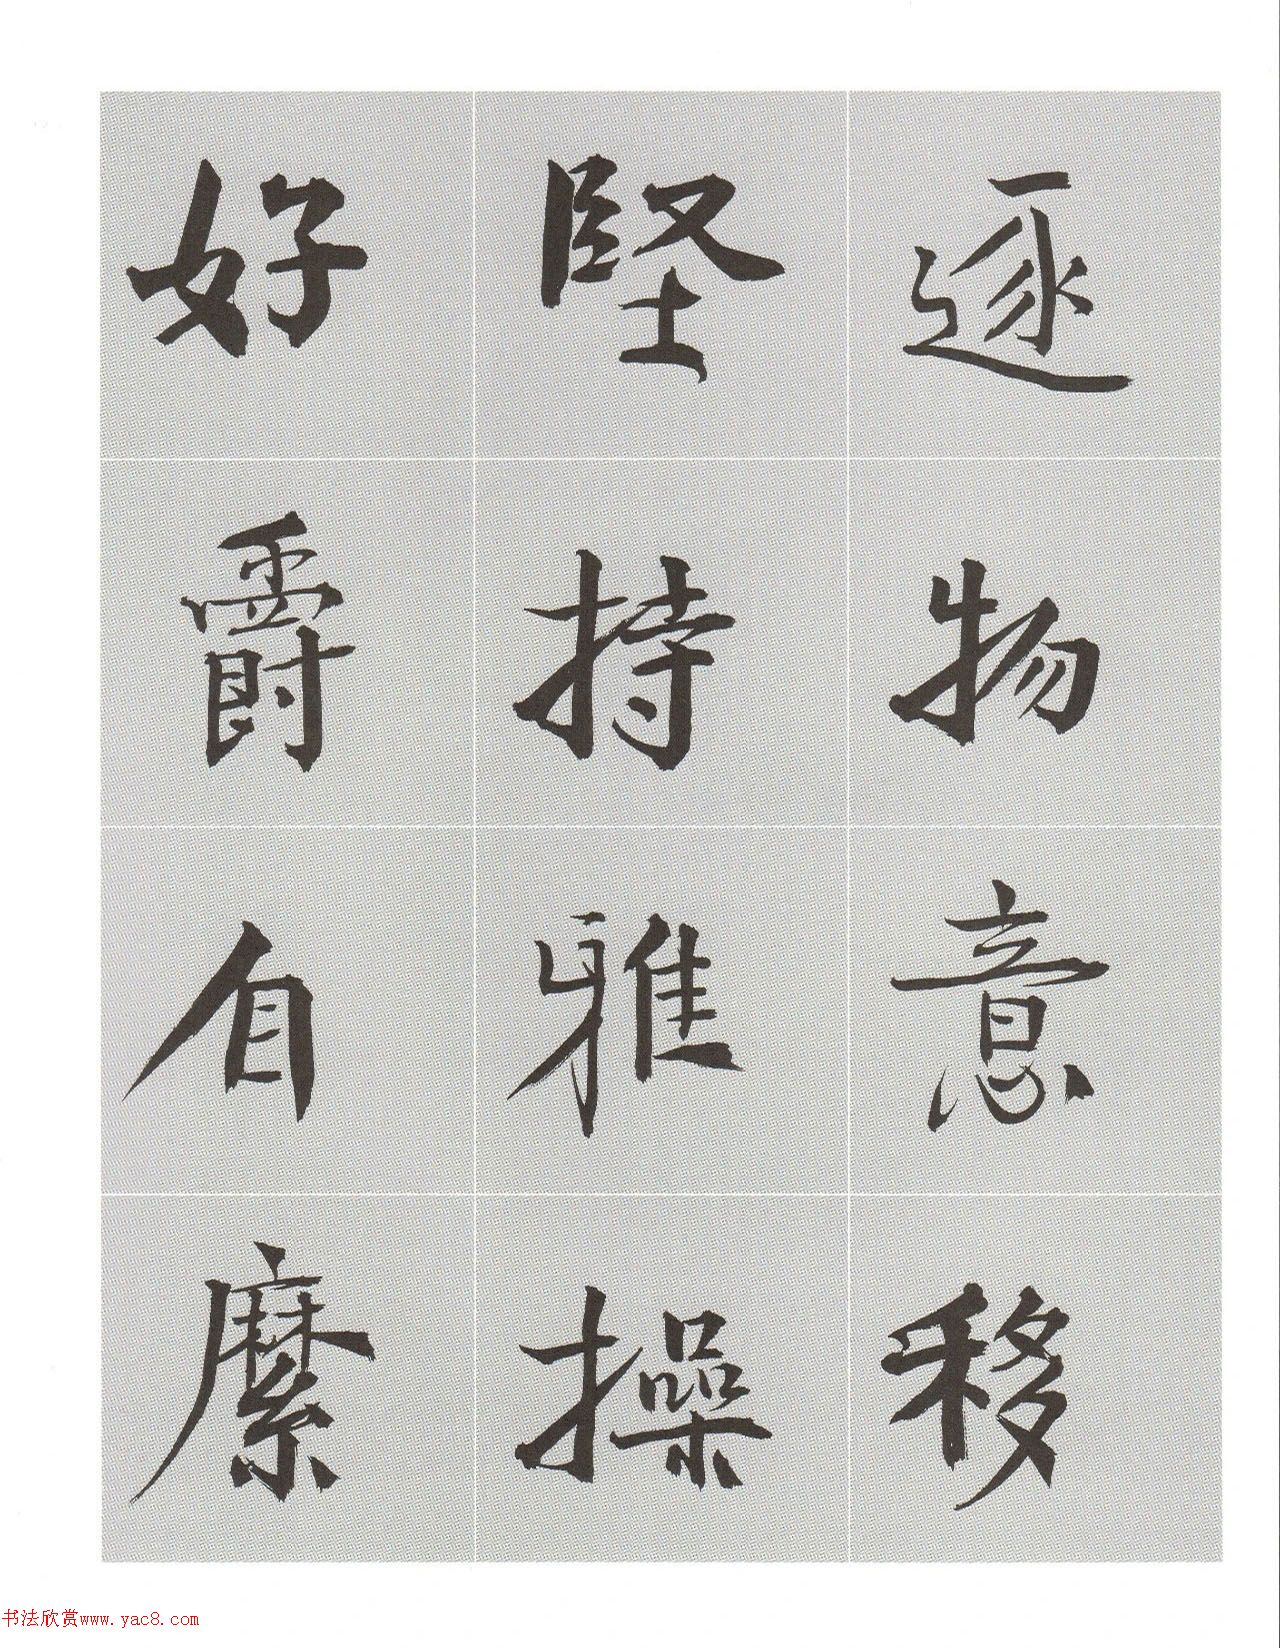 逐物意移
堅持雅操
好爵自縻
书法欣赏www.yac8.com